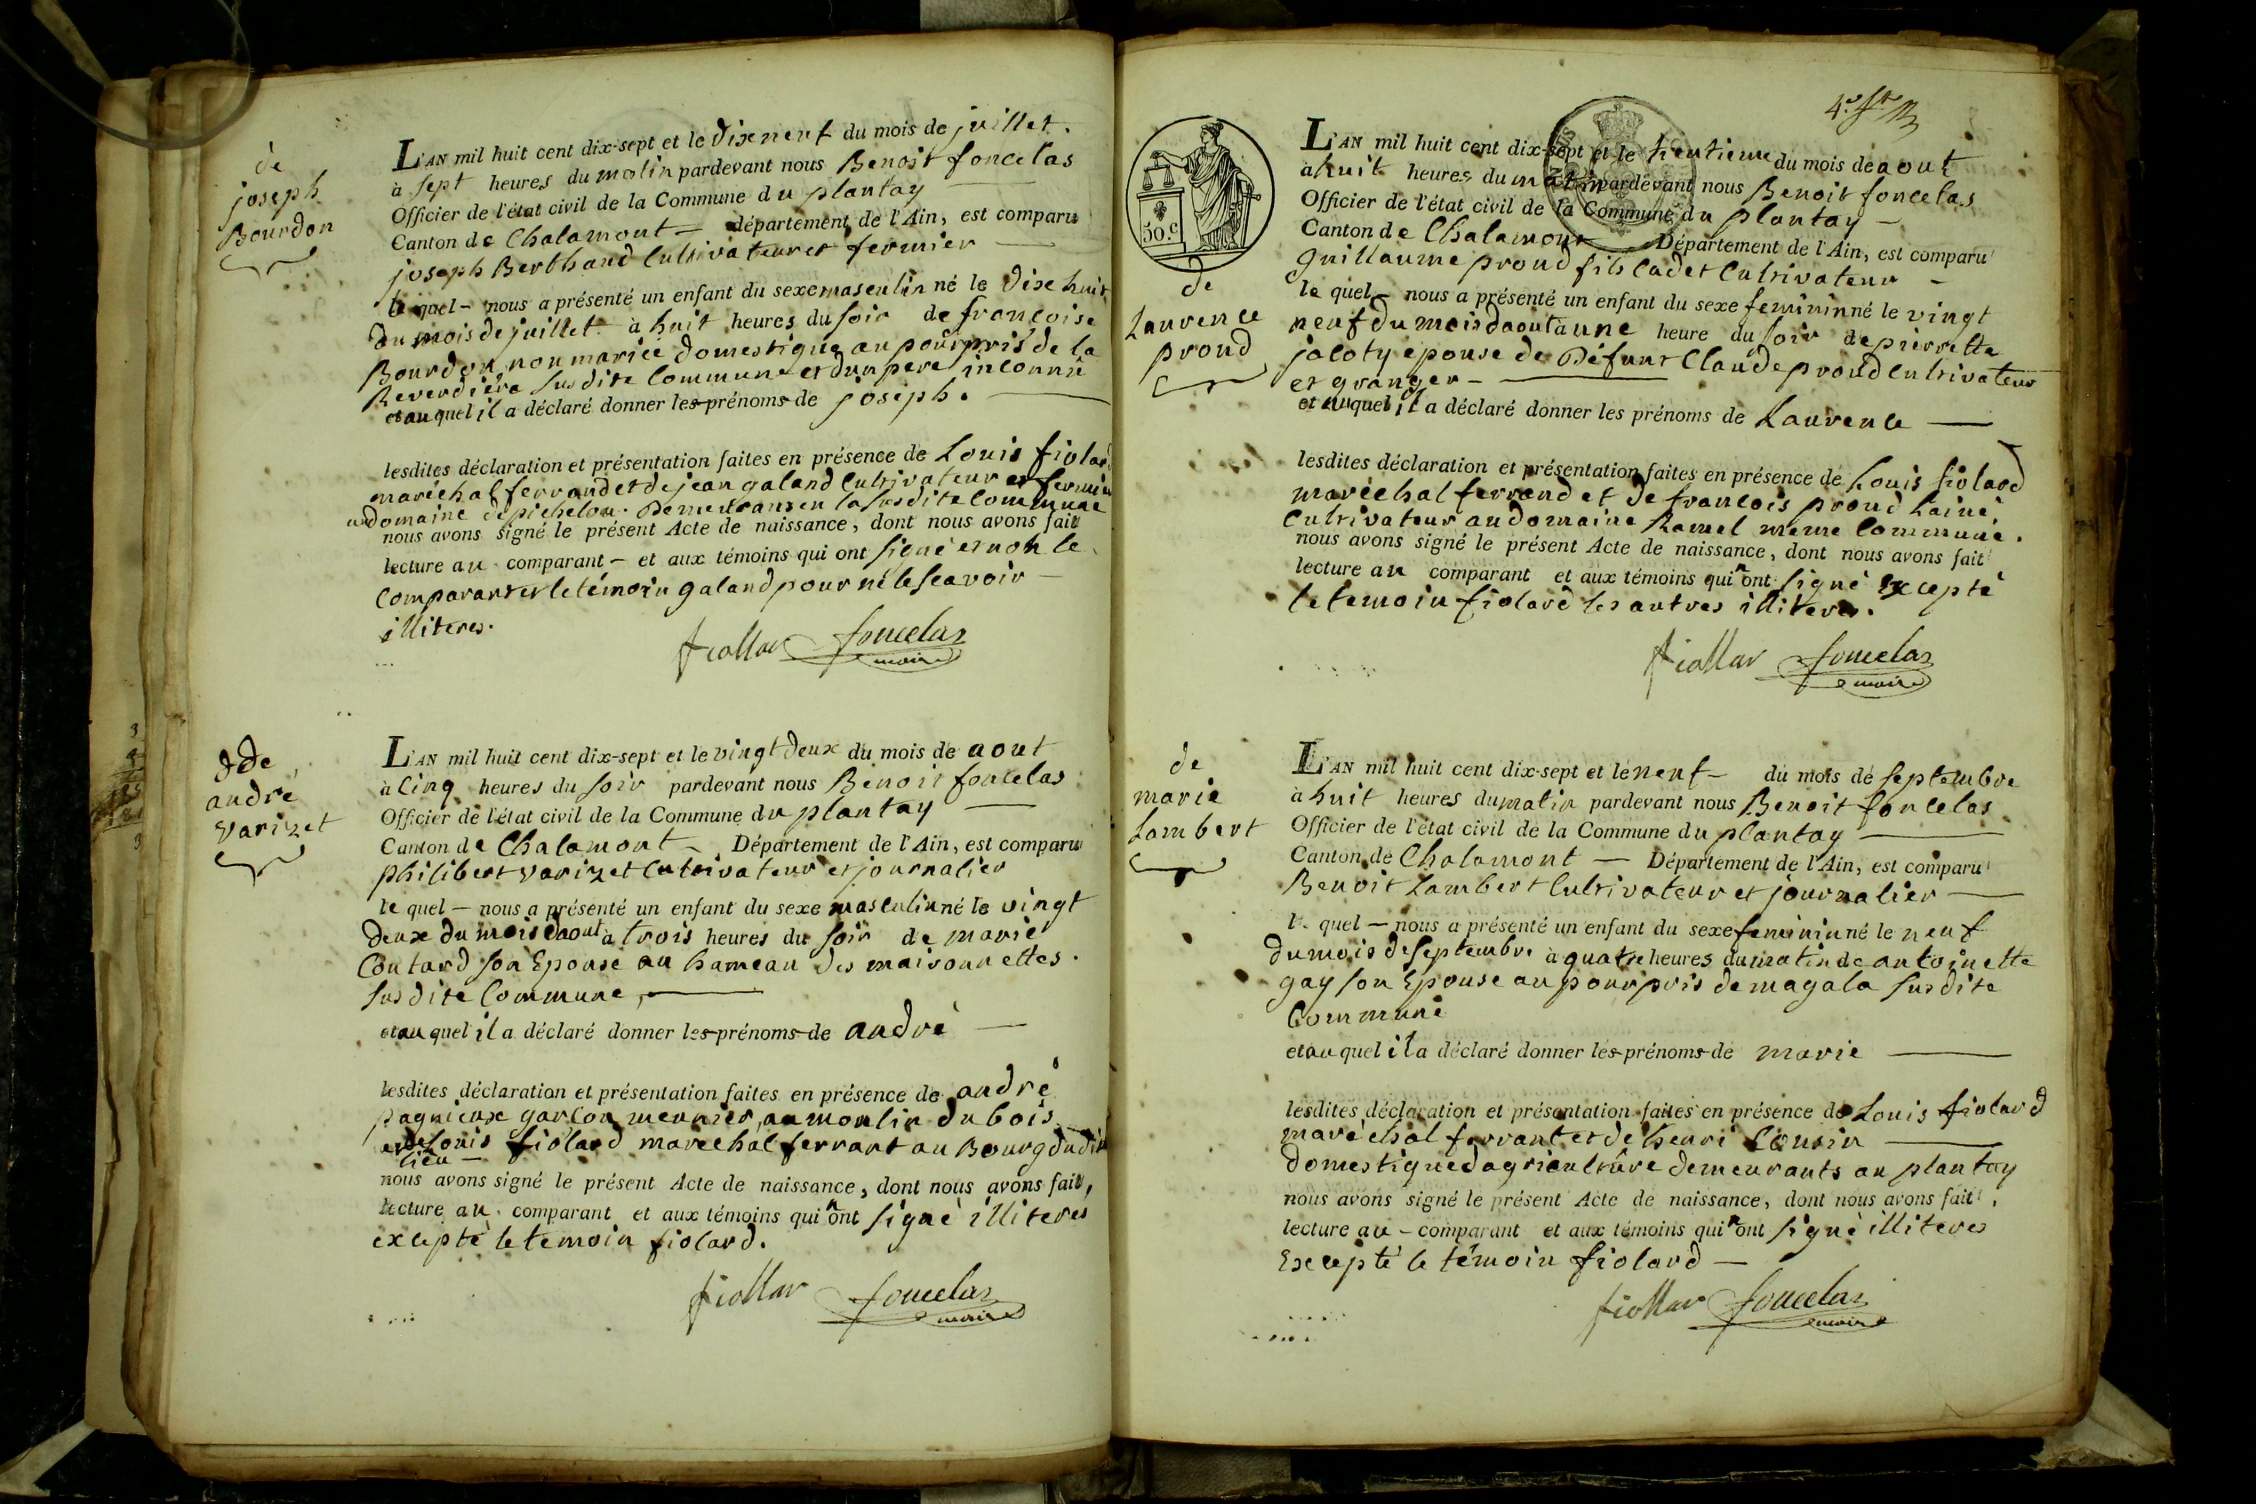 de
joseph
Bourdon
L'AN mil huit cent dix-sept et le dixeneuf du mois de juillet.
à sept heures du matin pardevant nous Benoit foncelas
Officier de l'état civil de la Commune du plantay
Canton de Chalamont département de l'Ain, est comparu
joseph Berthaud Cultivateur et fermier
le quel nous a présenté un enfant du sexe masculin né le dixe huit
du mois de juillet à huit heures du soir de francoise
Bourdon, non mariée domestique au pourpris de la
Reverdière susdite Commune et dun pere inconnu
et au quel il a déclaré donner les prénoms de joseph.
lesdites déclaration et présentation faites en présence de Louis fiolard
maréchal ferrand et de jean galand Cultivateur et fermier
au domaine de pichelou. Demeurans en la susdite Commune
nous avons signé le présent Acte de naissance, dont nous avons fait
lecture au comparant et aux témoins qui ont signé et non le
Comparant et le témoin galand pour ne le scavoir
illiteres.
fiollar foncelas
maire
de
andré
Varizet
L'AN mil huit cent dix-sept et le vingt deux du mois de aout
à Cinq heures du soir pardevant nous Benoit foncelas
Officier de l'état civil de la Commune du plantay
Canton de Chalamont Département de l'Ain, est comparu
philibert varizet Cultivateur et journalier
le quel nous a présenté un enfant du sexe masculin né le vingt
deux du mois daout à trois heures du soir de marie
Coutard son Epouse au hameau des maisonnettes.
susdite Commune,
et au quel il a déclaré donner les prénoms de andré
lesdites déclaration et présentation faites en présence de andré
pagnieux garcon meunier, au moulin du bois
et de Louis fiolard marechal ferrant au Bourg dudit
lieu
nous avons signé le présent Acte de naissance, dont nous avons fait
lecture au comparant et aux témoins qui n'ont signé illiteres
excepté le temoin fiolard.
fiollar foncelas
maire
4.e
50.c
de
Laurence
proud
L'AN mil huit cent dix-sept et le trentieme du mois de aout
à huit heures du matin pardevant nous Benoit foncelas
Officier de l'état civil de la Commune du plantay
Canton de Chalamont Département de l'Ain, est comparu
guillaume proud fils Cadet Cultivateur
le quel nous a présenté un enfant du sexe femininné le vingt
neuf du mois daout à une heure du soir de pierrette
jaloty épouse de Défunt Claude proud Cultivateur
et granger
et auquel il a déclaré donner les prénoms de Laurence
lesdites déclaration et présentation faites en présence de Louis fiolard
maréchal ferrand et de francois proud Lainé
Cultivateur au domaine Ramel meme Commune.
nous avons signé le présent Acte de naissance, dont nous avons fait
lecture au comparant et aux témoins qui n'ont signé excepté
le temoin fiolard les autres illiteres.
fiollar foncelas
maire
de
marie
Lambert
L'AN mil huit cent dix-sept et le neuf du mois de septembre
à huit heures du matin pardevant nous Benoit foncelas
Officier de l'état civil de la Commune du plantay
Canton de Chalamont Département de l'Ain, est comparu
Benoit Lambert Cultivateur et journalier
l. quel nous a présenté un enfant du sexe femininné le neuf
du mois de septembre à quatre heures du matin de antoinette
gay son Epouse au pourpris de magala susdite
Commune
et au quel il a déclaré donner les prénoms de marie
lesdites déclaration et présentation faites en présence de Louis fiolard
maréchal ferrant et de henri Cousin
domestique dagriculture demeurants au plantay
nous avons signé le présent Acte de naissance, dont nous avons fait
lecture au comparant et aux témoins qui n'ont signé illiteres
Excepté le témoin fiolard
fiollar foncelas
maire